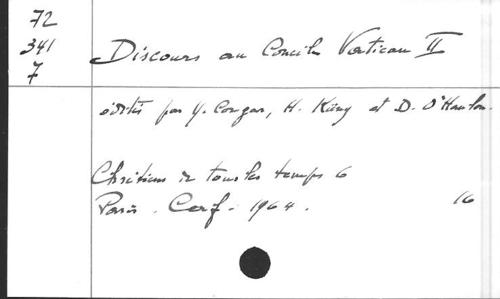 72
341
7
Discours au Concile Vatican II
édités par Y. Congar, H. Küng et D. O'Hanlon.
Chrétiens de tous les temps 6
Paris. Cerf. 1964.
16